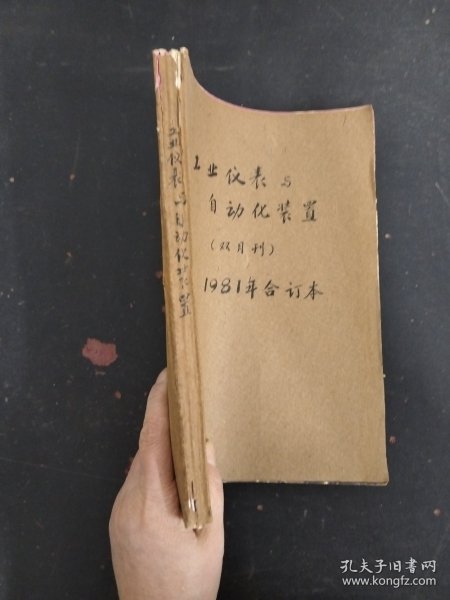 工业仪表与
自动化装置
(双月刊)
1981年合订本
工业仪表与自动化装置
孔夫子旧书网
www.kongfz.com